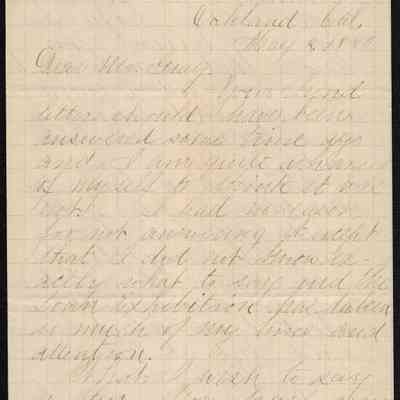 Oakland Cal.
May 8 18
Dear Mr.
Your kind
letter should have been
answered some time ago
and I am quite ashamed
of myself to think it was
not. I had no excuse
for not answering it except
that I did not know ex-
actly what to say and the
Loan Exhibition has taken
so much of my time and
attention.
What I wish to say